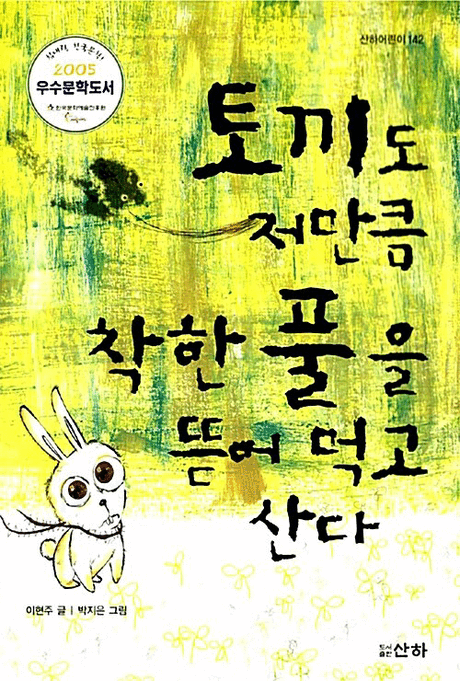 산하어린이 142
2005
우수문학도서
한국문화예술진흥원
토끼도
저만큼
착한 풀을
뜯어 먹고
산다
이현주 글 | 박지은 그림
도서
출판 산하